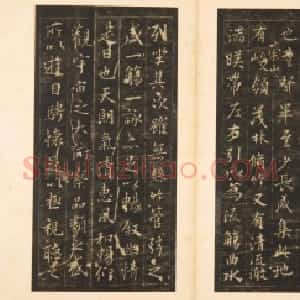 也羣賢畢至少長咸集此地
有崇山
峻領茂林脩竹又有清流激
湍暎帶左右引以為流觴曲水
列坐其次雖無絲竹管弦之
盛一觴一詠亦足以暢敘幽情
是日也天朗氣清惠風和暢仰
觀宇宙之大俯察品類之盛
所以遊目騁懷足以極視聽之